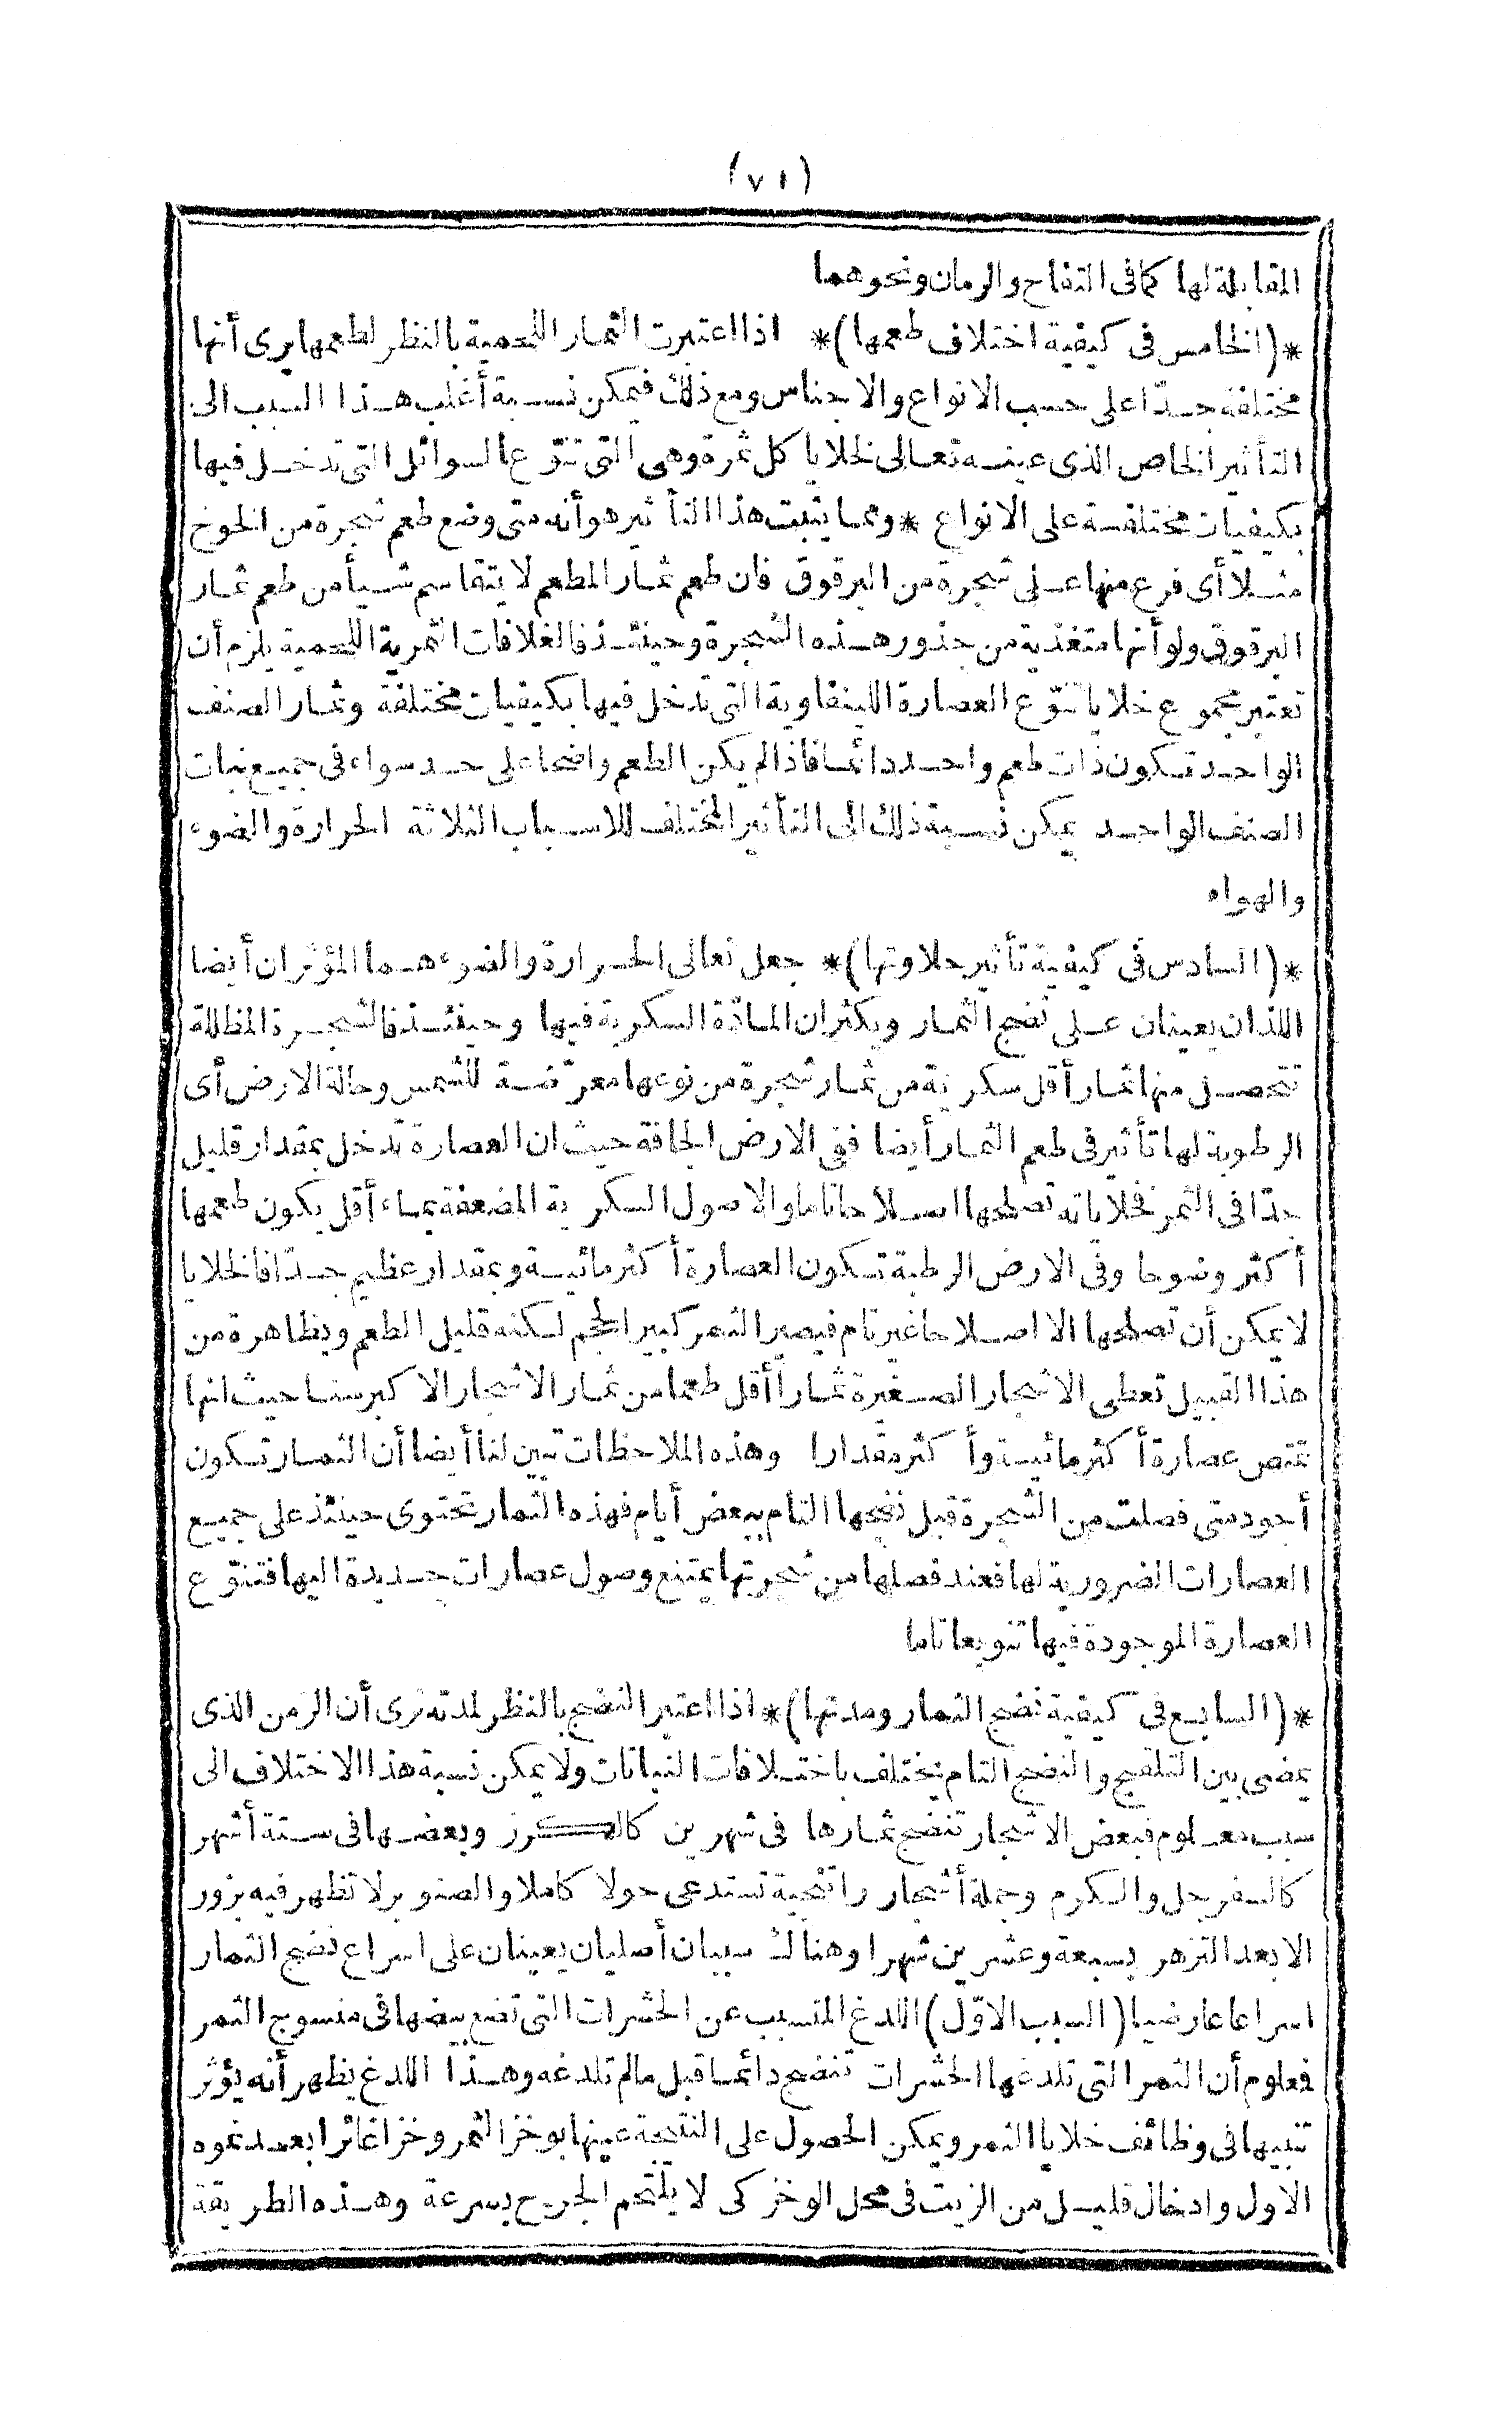 (٧١)
المقابلة لها كما فى التفاح والرمان ونحوهما
*(الخامس فى كيفية اختلاف طعمها)* اذا اعتبرت الثمار اللحمية بالنظر لطعمها يرى أنها
مختلفة جدّا على حسب الانواع والاجناس ومع ذلك فيمكن نسبة أغلب هذا السبب الى
التأثير الخاص الذى عينه تعالى لخلايا كل ثمرة وهى التى تنوّع السوائل التى تدخل فيها
بكيفيات مختلفة على الانواع * ومما يثبت هذا التأثير هو أنه متى وضع طعم شجرة من الخوخ
مثلا أى فرع منها على شجرة من البرقوق فان طعم ثمار المطعم لا يتقاسم شيأ من طعم ثمار
البرقوق ولو أنها متغذية من جذور هذه الشجرة وحينئذ فالغلافات الثمرية اللحمية يلزم أن
تعتبر مجموع خلايا تنوّع العصارة اللينفاوية التى تدخل فيها بكيفيات مختلفة وثمار الصنف
الواحد تكون ذات طعم واحد دائما فاذا لم يكن الطعم واضحا على حد سواء فى جميع نبات
الصنف الواحد يمكن نسبة ذلك الى التأثير المختلف للاسباب الثلاثة الحرارة والضوء
والهواء
*(السادس فى كيفية تأثير حلاوتها)* جعل تعالى الحرارة والضوء هما المؤثران أيضا
اللذان يعينان على نضج الثمار ويكثران المادّة السكرية فيها وحينئذ فالشجرة المظللة
تتحصل منها ثمار أقل سكرية من ثمار شجرة من نوعها معرّضة للشمس وحالة الارض أى
الرطوبة لها تأثير فى طعم الثمار أيضا ففى الارض الجافة حيث ان العصارة تدخل بمقدار قليل
جدّا فى الثمر فخلاياته تصلحها اصلاحا تاما والاصول السكرية المضعفة بماء أقل يكون طعمها
أكثر وضوحا وفى الارض الرطبة تكون العصارة أكثر مائية وبمقدار عظيم جدّا فالخلايا
لا يمكن أن تصلحها الا اصلاحا غير تام فيصير الثمر كبير الحجم لكنه قليل الطعم وبظاهرة من
هذا القبيل تعطى الاشجار الصغيرة ثمارا أقل طعما من ثمار الاشجار الاكبر سنا حيث انها
تمتص عصارة أكثر مائية وأكثر مقدارا وهذه الملاحظات تبين لنا أيضا أن الثمار تكون
أجود متى فصلت من الشجرة قبل نضجها التام ببعض أيام فهذه الثمار تحتوى حينئذ على جميع
العصارات الضرورية لها فعند فصلها من شجرتها يمتنع وصول عصارات جديدة اليها فتنوّع
العصارة الموجودة فيها تنويعا تاما
*(السابع فى كيفية نضج الثمار ومدتها)* اذا اعتبر النضج بالنظر لمدته نرى أن الزمن الذى
يمضى بين التلقيح والنضج التام يختلف باختلافات النباتات ولا يمكن نسبة هذا الاختلاف الى
سبب معلوم فبعض الاشجار تنضج ثمارها فى شهرين كالكرز وبعضها فى ستة أشهر
كالسفرجل والكرم وجملة أشجار راتنجية تستدعى حولا كاملا والصنوبر لا تظهر فيه بزور
الا بعد التزهر بسبعة وعشرين شهرا وهناك سببان أصليان يعينان على اسراع نضج الثمار
اسراعا عارضيا (السبب الاوّل) اللدغ المتسبب عن الحشرات التى تضع بيضها فى منسوج الثمر
فعلوم أن الثمر التى تلدغها الحشرات تنضج دائما قبل ما لم تلدغه وهذا اللدغ يظهر أنه يؤثر
تنبيها فى وظائف خلايا الثمر ويمكن الحصول على النتيجة عينها بوخز الثمر وخزا غائرا بعد نموه
الاول وادخال قليل من الزيت فى محل الوخز كى لا يلتحم الجرح بسرعة وهذه الطريقة